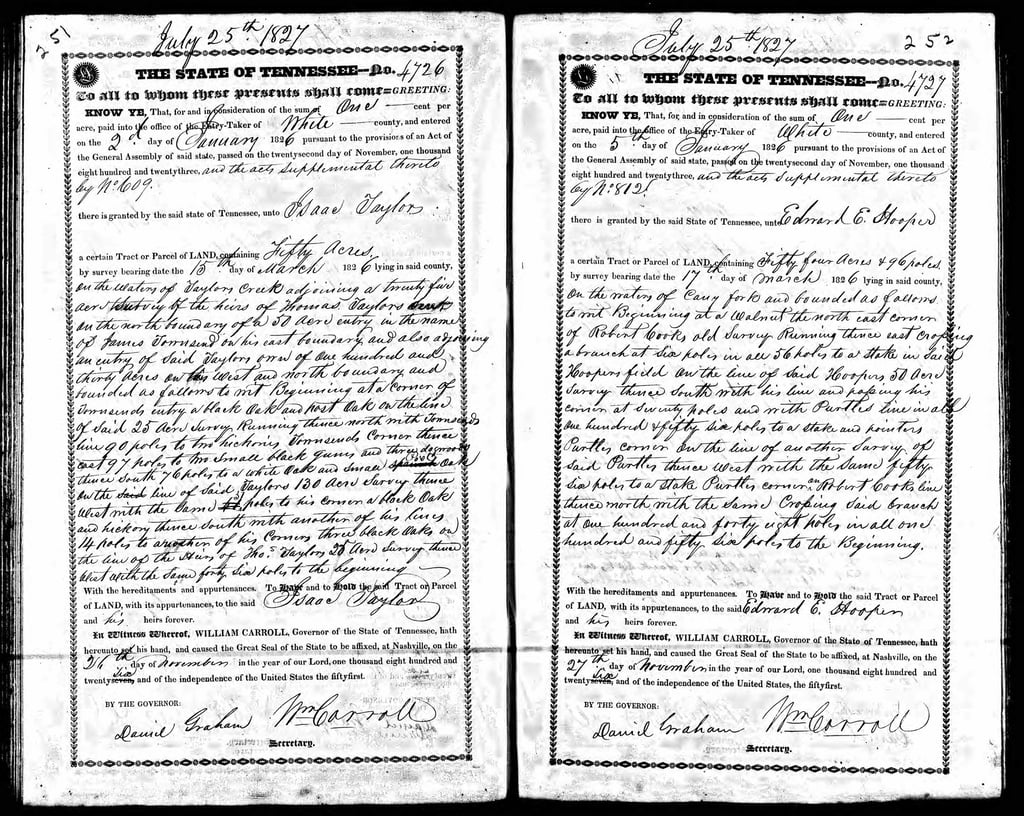 251
July 25th 1827
THE STATE OF TENNESSEE—No. 4726
To all to whom these presents shall come=GREETING:
KNOW YE, That, for and in consideration of the sum of One cent per
acre, paid into the office of the Entry-Taker of White county, and entered
on the 2d day of January 1826 pursuant to the provisions of an Act of
the General Assembly of said state, passed on the twentysecond day of November, one thousand
eight hundred and twentythree, and the acts Supplemental thereto
by No. 609.
there is granted by the said state of Tennessee, unto Isaac Taylor
a certain Tract or Parcel of LAND, containing Fifty Acres.
by survey bearing date the 15th day of March 1826 lying in said county,
On the Waters of Taylors Creek adjoining a twenty five
acre Survey of the heirs of Thomas Taylors
on the north boundary of a 50 Acre entry in the name
of James Townsend on his east boundary and also adjoining
an entry of Said Taylors own of One hundred and
thirty Acres on his West and north boundary and
bounded as follows to wit Beginning at a Corner of
Townsends entry a black Oak and post Oak on the line
of Said 25 Acre Survey Running thence north with Townsends
line 90 poles to two hickories Townsends Corner thence
east 97 poles to two Small black gums and three dogwoods
thence South 76 poles to a white Oak and Small Oak
On the said line of Said Taylors 130 Acre Survey thence
West with the Same poles to his corner a black Oak
and hickory thence South with another of his lines
14 poles to another of his Corners three black Oaks on
the line of the Heirs of Thos. Taylors 25 Acre Survey thence
West with the Same forty Six poles to the beginning
With the hereditaments and appurtenances. To Have and to Hold the said Tract or Parcel
of LAND, with its appurtenances, to the said Isaac Taylor
and his heirs forever.
In Witness Whereof, WILLIAM CARROLL, Governor of the State of Tennessee, hath
hereunto set his hand, and caused the Great Seal of the State to be affixed, at Nashville, on the
26th day of November in the year of our Lord, one thousand eight hundred and
Six
twentyseven, and of the independence of the United States the fiftyfirst.
BY THE GOVERNOR:
Wm Carroll
Daniel Graham
Secretary.
July 25th 1827 252
THE STATE OF TENNESSEE—No. 4727
To all to whom these presents shall come=GREETING:
KNOW YE, That, for and in consideration of the sum of One cent per
acre, paid into the office of the Entry-Taker of White county, and entered
on the 5th day of January 1826 pursuant to the provisions of an Act of
the General Assembly of said state, passed on the twentysecond day of November, one thousand
eight hundred and twentythree, and the acts Supplemental thereto
by No. 812.
there is granted by the said State of Tennessee, unto Edward E. Hooper
a certain Tract or Parcel of LAND, containing Fifty four Acres & 96 poles.
by survey bearing date the 17th day of March 1826 lying in said county,
On the waters of Cany fork and bounded as follows
to wit Beginning at a Walnut the north east corner
of Robert Cooks old Survey Running thence east Crossing
a branch at Six poles in all 56 poles to a Stake in Said
Hoopers field On the line of Said Hoopers 50 Acre
Survey thence South with his line and passing his
corner at Seventy poles and with Purtles line in all
One hundred & fifty Six poles to a Stake and pointers
Purtles corner On the line of another Survey of
Said Purtles thence West with the Same fifty
Six poles to a Stake Purtles corner on Robert Cooks line
thence north with the Same Crossing Said branch
at One hundred and forty eight poles in all one
hundred and fifty Six poles to the Beginning.
With the hereditaments and appurtenances. To Have and to Hold the said Tract or Parcel
of LAND, with its appurtenances, to the said Edward E. Hooper
and his heirs forever.
In Witness Whereof, WILLIAM CARROLL, Governor of the State of Tennessee, hath
hereunto set his hand, and caused the Great Seal of the State to be affixed, at Nashville, on the
27th day of November in the year of our Lord, one thousand eight hundred and
Six
twentyseven, and of the independence of the United States, the fiftyfirst.
BY THE GOVERNOR:
Wm Carroll
Daniel Graham
Secretary.